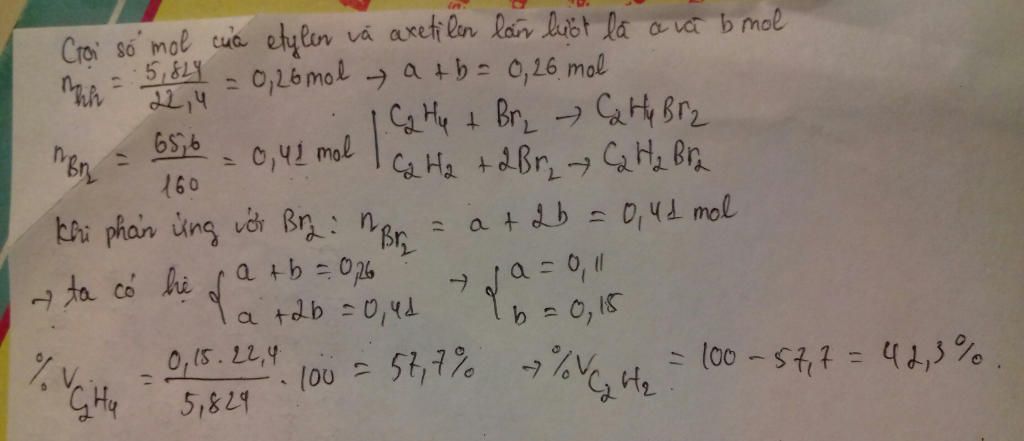 Gọi số mol của etylen và axetilen lần lượt là a và b mol
nhh = 5,824 / 22,4 = 0,26 mol → a + b = 0,26 mol
nBr2 = 65,6 / 160 = 0,41 mol | C2H4 + Br2 → C2H4Br2
C2H2 + 2Br2 → C2H2Br2
Khi phản ứng với Br2: nBr2 = a + 2b = 0,41 mol
→ ta có hệ { a + b = 0,26 → { a = 0,11
a + 2b = 0,41 b = 0,15
% VC2H4 = 0,15.22,4 / 5,824 . 100 = 57,7% → %VC2H2 = 100 - 57,7 = 42,3%.